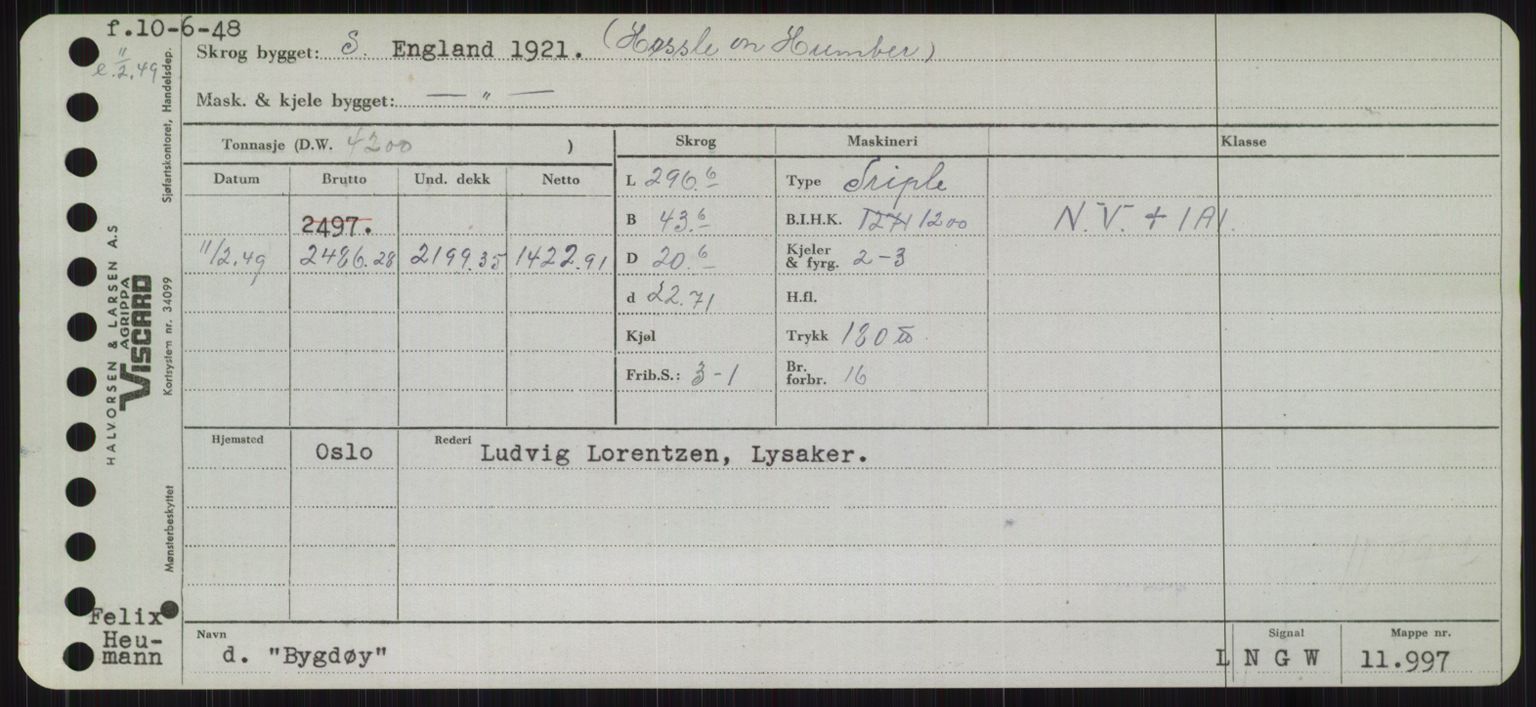 f.10-6-48
e. 11/2.49
Skrog bygget: S. England 1921. (Hessle on Humber)
Mask. & kjele bygget: — " —
Tonnasje (D.W. 4200 )
Skrog
Maskineri
Klasse
Datum Brutto Und. dekk Netto
L 296.6
Type Triple
2497.
B 43.6
B.I.H.K. 1271 1200
N.V. + 1A1.
11/2.49 2486.28 2199.35 1422.91
D 20.6
Kjeler
& fyrg. 2-3
d 22.71
H.fl.
Kjøl
Trykk 180 lb.
Frib.S.: 3-1
Br.
forbr. 16
Hjemsted Oslo
Rederi Ludvig Lorentzen, Lysaker.
Navn
d. "Bygdøy"
Signal
L N G W
Mappe nr.
11.997
Felix
Heu-
mann
Sjøfartskontoret, Handelsdep.
HALVORSEN & LARSEN A.S
AGRIPPA
VISCARD
Kortsystem nr. 34099
Mønsterbeskyttet